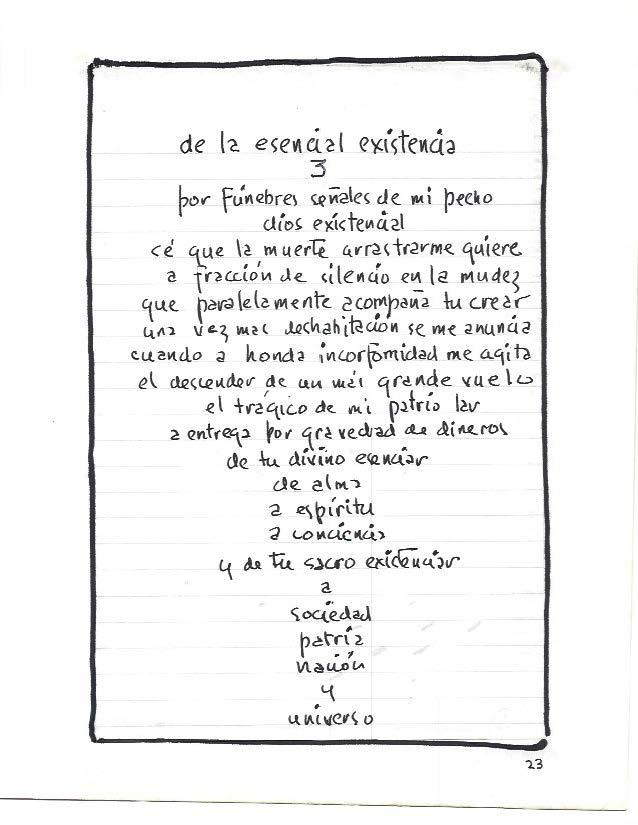 de la esencial existencia
3
por fúnebres señales de mi pecho
dios existencial
sé que la muerte arrastrarme quiere
a fracción de silencio en la mudez
que paralelamente acompaña tu crear
una vez mas deshabitación se me anuncia
cuando a honda incorformidad me agita
el descender de un más grande vuelo
el trágico de mi patrio lar
a entrega por gravedad de dineros
de tu divino esenciar
de alma
a espíritu
a conciencia
y de tu sacro existenciar
a
sociedad
patria
nación
y
universo
23